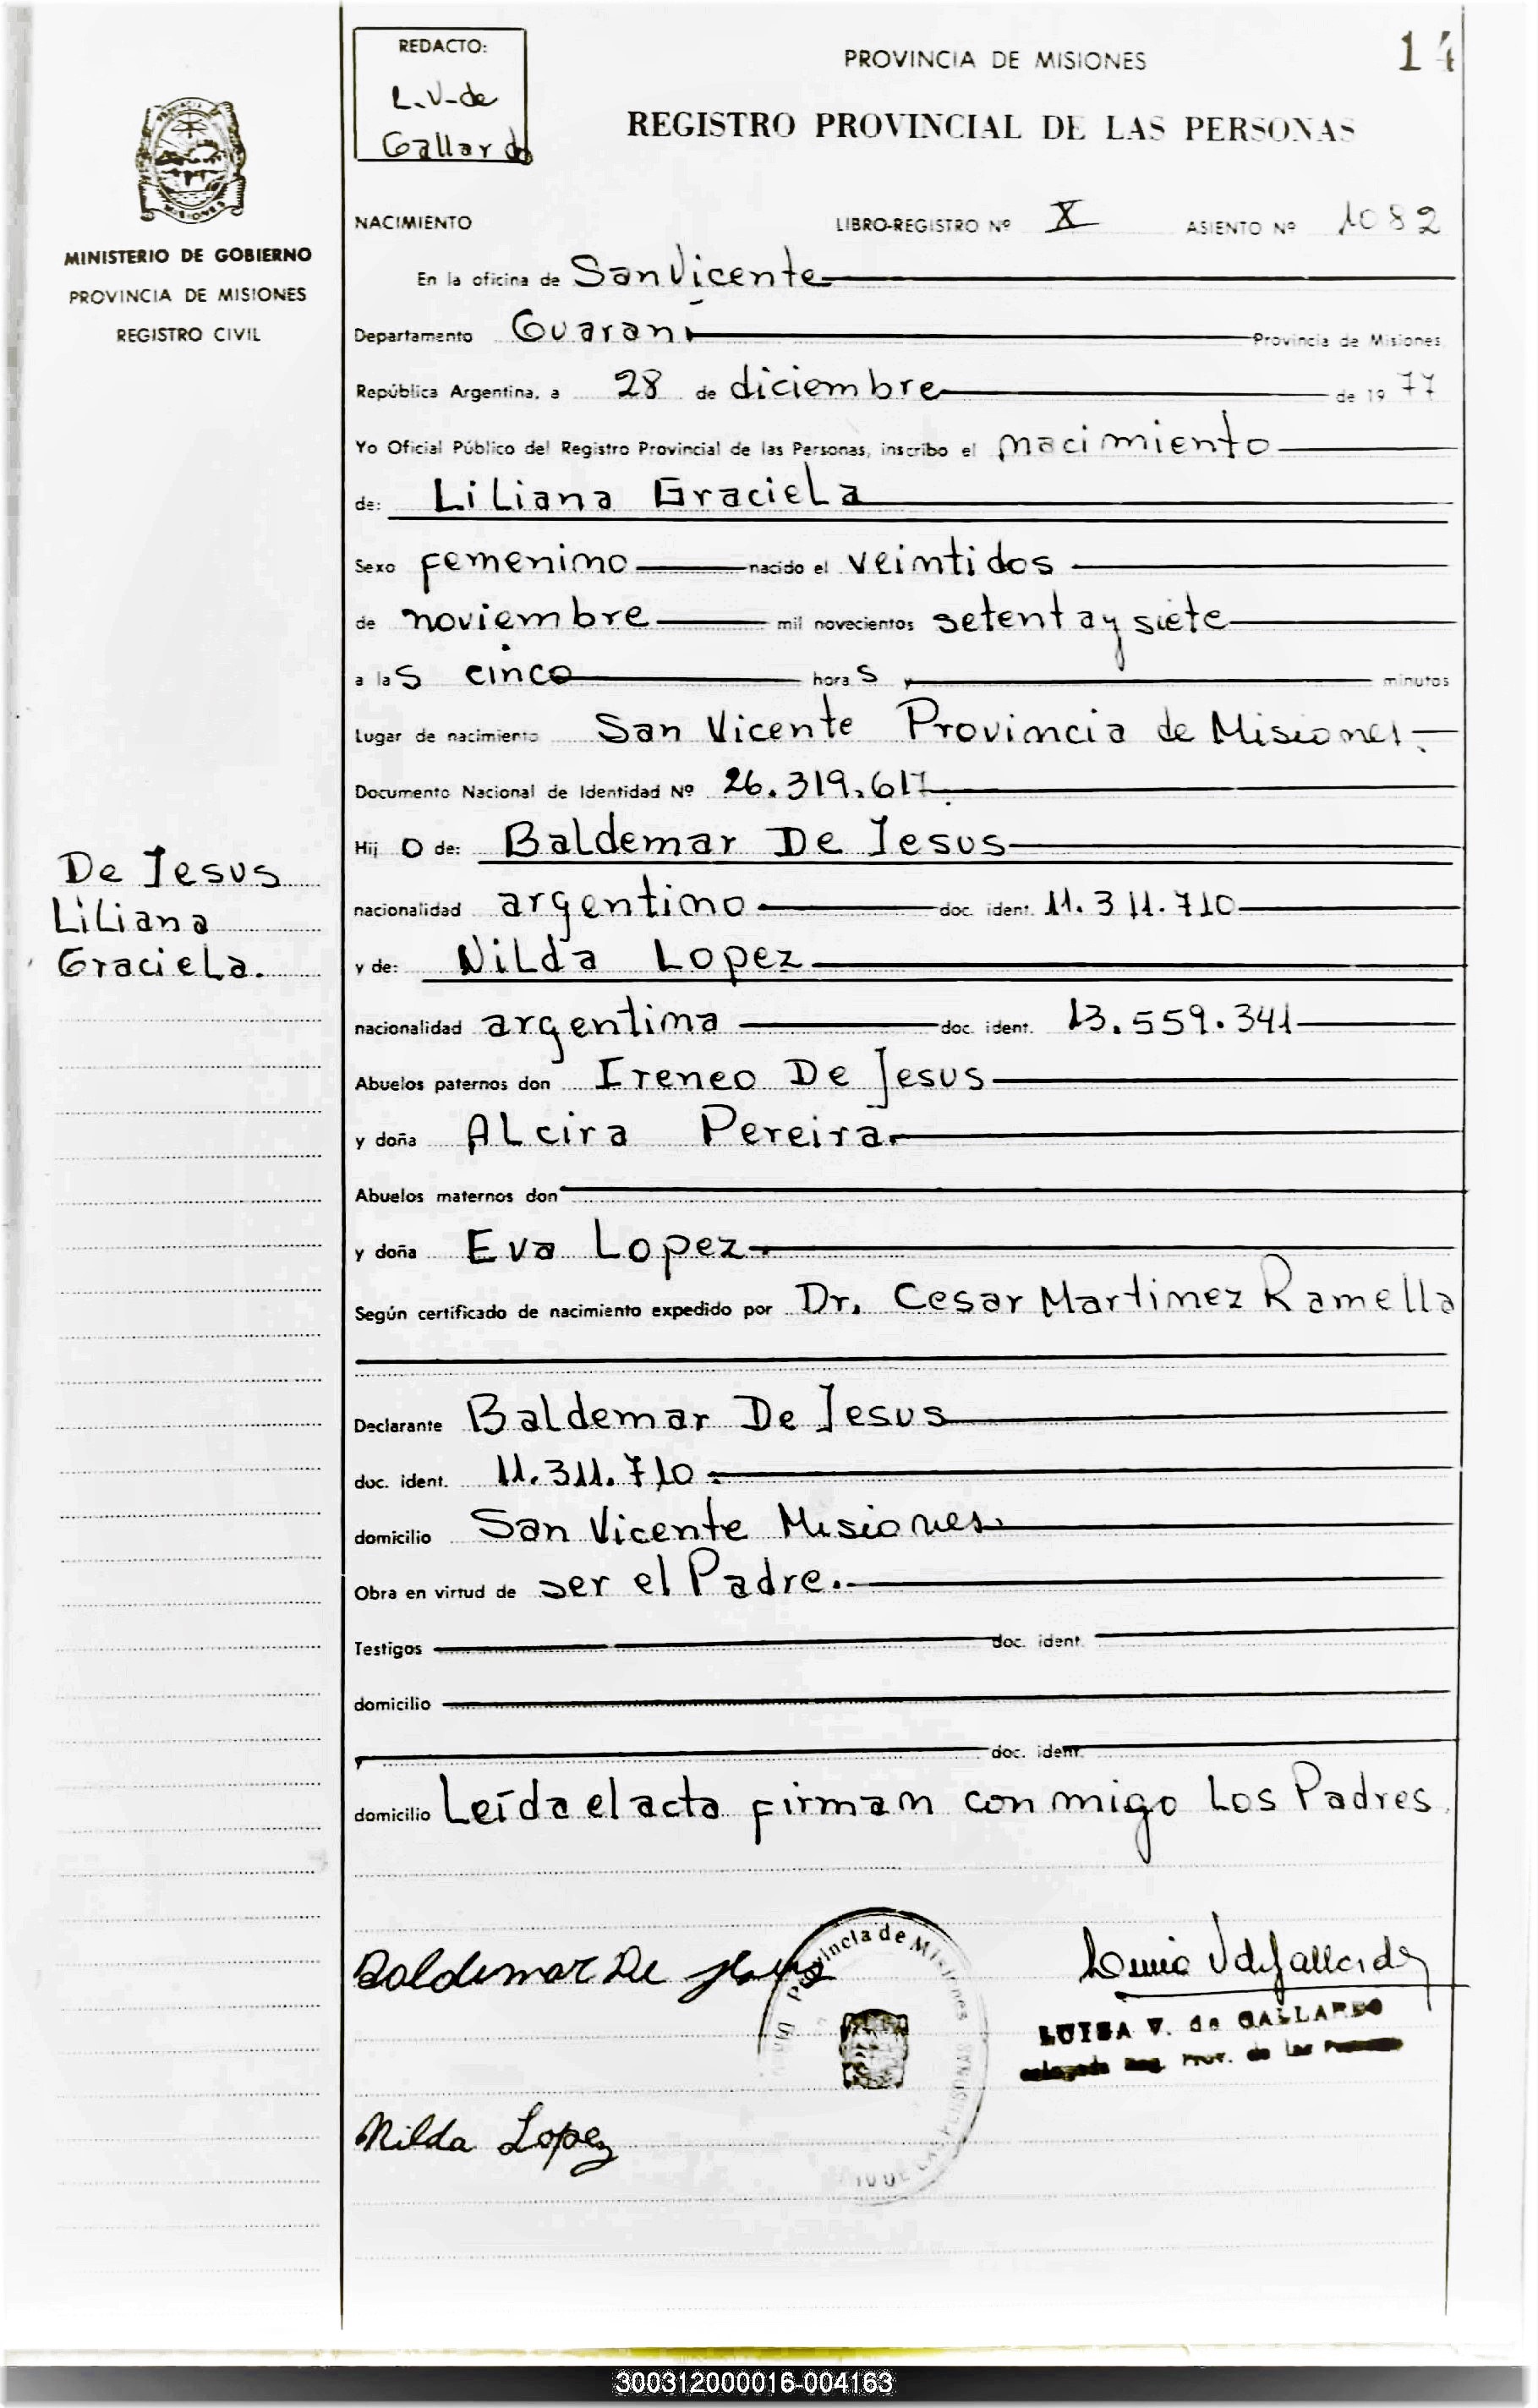 REDACTO:
L.V. de
Gallardo
PROVINCIA DE MISIONES
14
REGISTRO PROVINCIAL DE LAS PERSONAS
MISIONES
MINISTERIO DE GOBIERNO
PROVINCIA DE MISIONES
REGISTRO CIVIL
NACIMIENTO LIBRO-REGISTRO Nº X ASIENTO Nº 1082
En la oficina de San Vicente
Departamento Guaraní Provincia de Misiones
República Argentina, a 28 de diciembre de 1977
Yo Oficial Público del Registro Provincial de las Personas, inscribo el nacimiento
de: Liliana Graciela
Sexo femenino nacido el veintidos
de noviembre mil novecientos setenta y siete
a las cinco horas y minutos
Lugar de nacimiento San Vicente Provincia de Misiones.
Documento Nacional de Identidad Nº 26.319.617.
Hijo de: Baldemar De Jesus
De Jesus
Liliana
Graciela.
nacionalidad argentino doc. ident. 11.311.710
y de: Nilda Lopez
nacionalidad argentina doc. ident. 13.559.341
Abuelos paternos don Ireneo De Jesus
y doña Alcira Pereira.
Abuelos maternos don
y doña Eva Lopez.
Según certificado de nacimiento expedido por Dr. Cesar Martinez Ramella
Declarante Baldemar De Jesus
doc. ident. 11.311.710.
domicilio San Vicente Misiones.
Obra en virtud de ser el Padre.
Testigos doc. ident.
domicilio
y doc. ident.
domicilio Leída el acta firman con migo los Padres.
Baldemar De Jesus
Provincia de Misiones
PERSONAS
LUISA V. de GALLARDO
Delegada Reg. Prov. de las Personas
Nilda Lopez
300312000016-004163